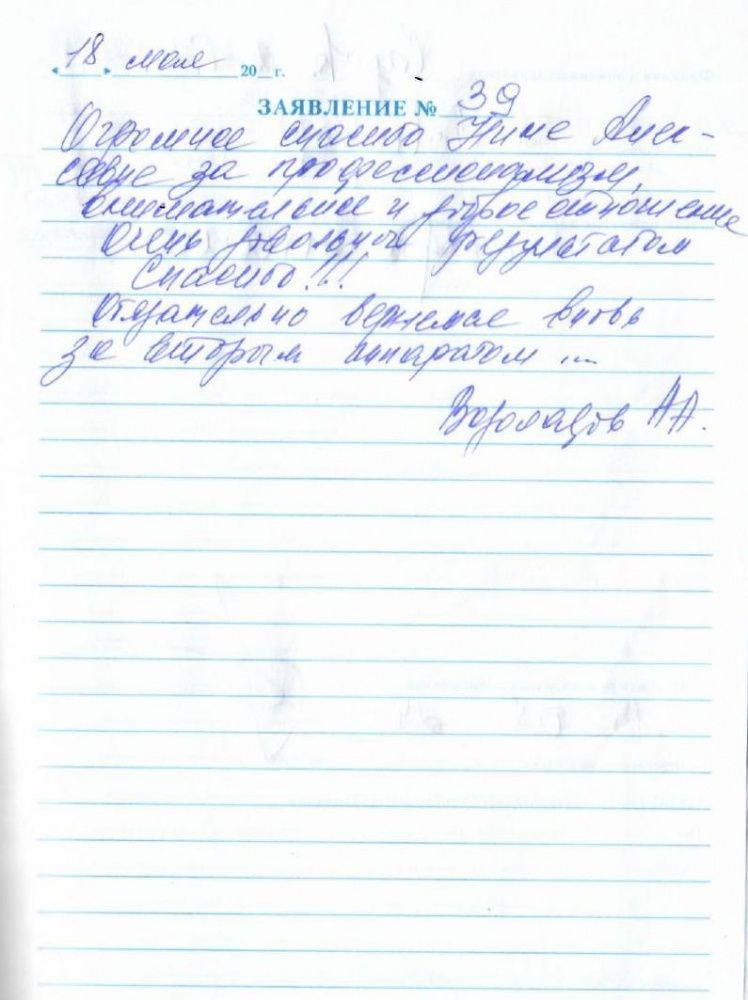 « 18 » мая 20 г.
ЗАЯВЛЕНИЕ № 39
Огромное спасибо Нине Алек-
севне за профессионализм,
внимательное и доброе отношение
Очень довольны результатом
Спасибо!!!
Обязательно вернемся вновь
за вторым аппаратом ...
А.А.